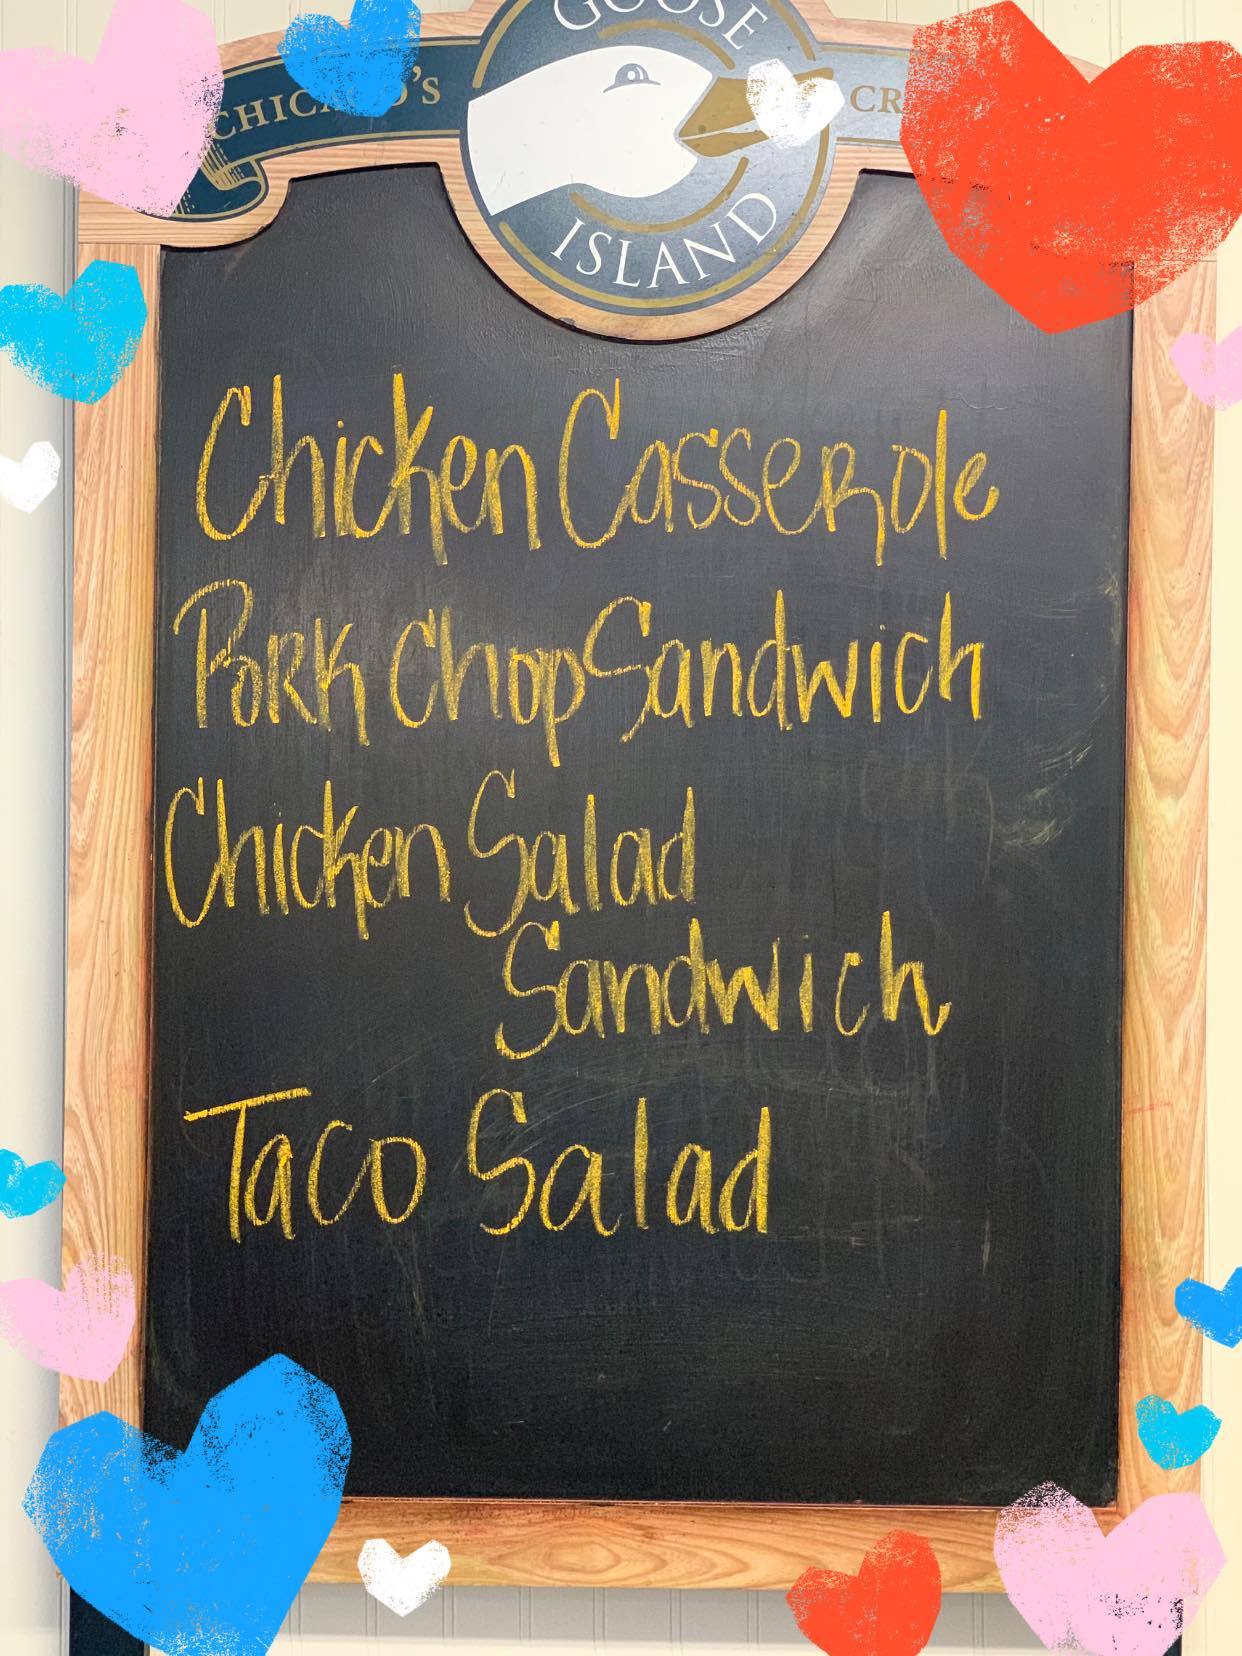 GOOSE
CHICAGO'S
ISLAND
Chicken Casserole
Pork Chop Sandwich
Chicken Salad
Sandwich
Taco Salad